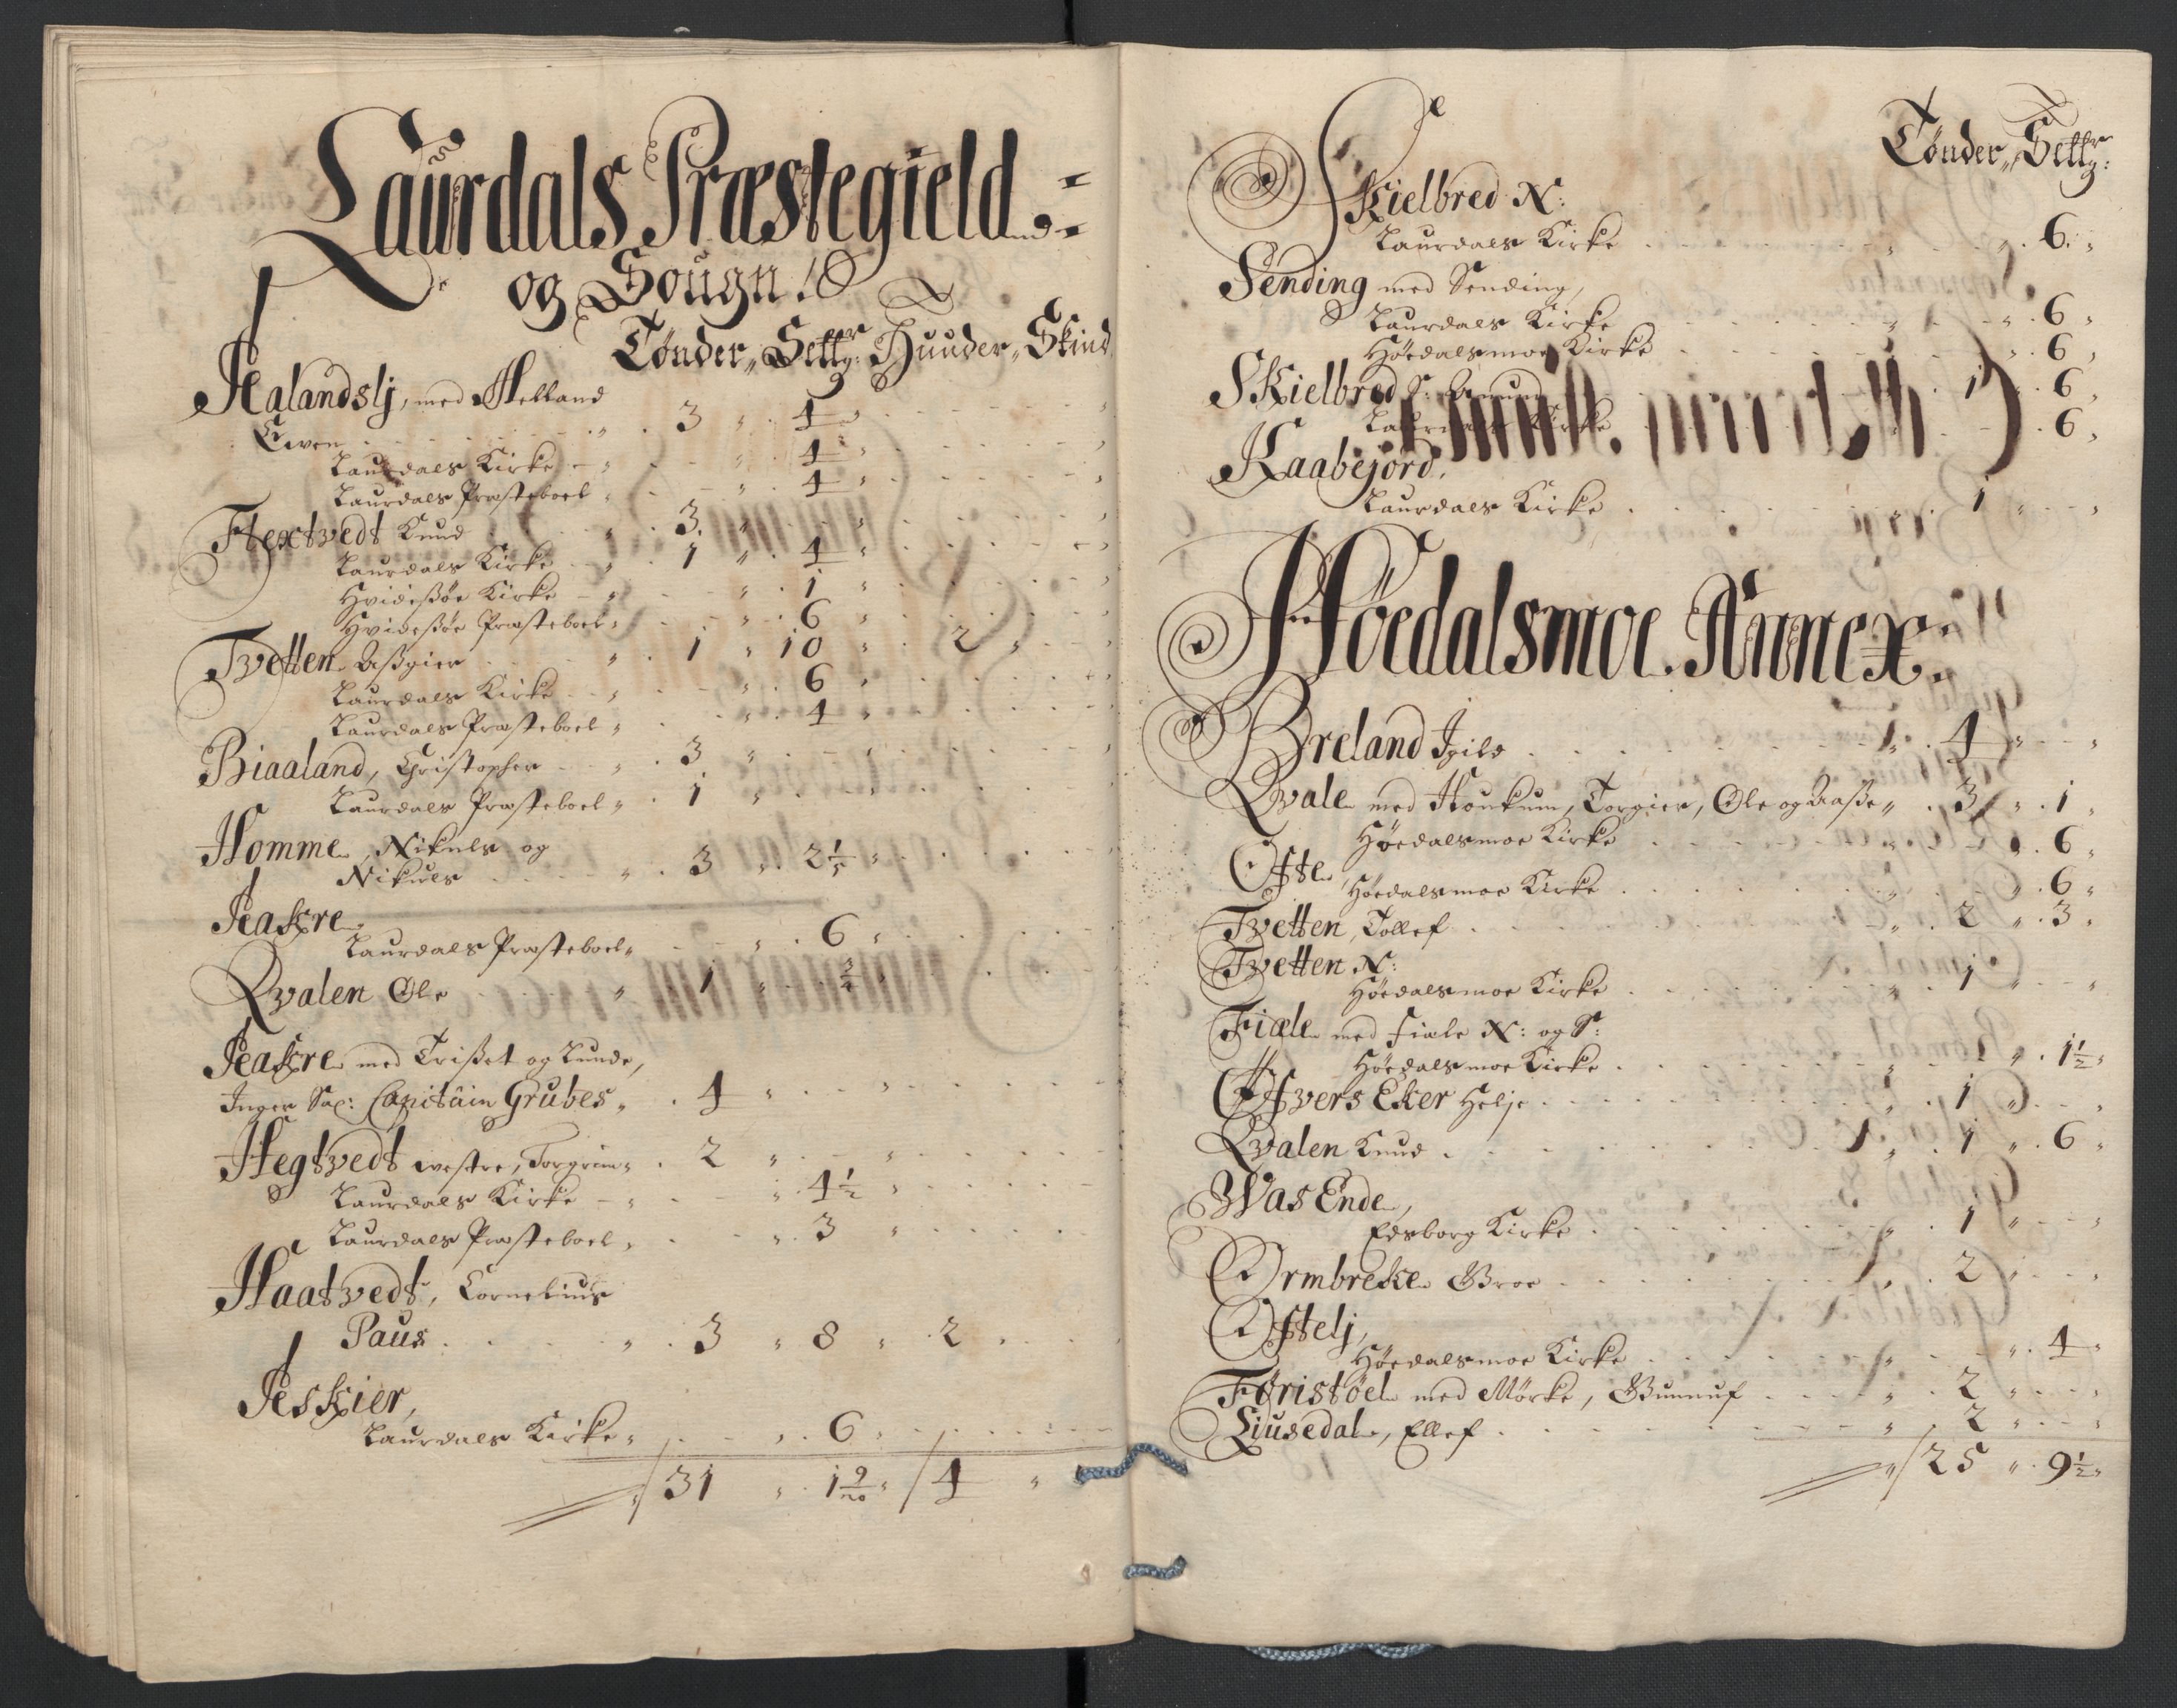 Laurdals Præstegield
og Sougn
Tønder„ Settgr: Huuder„ Skind
Aalandslj, med Aelland
Even „ 3 „ 4 „
Laurdals Kirke „ „ 4 „
Laurdals Præsteboel „ „ 4 „
Flextvedt Knud „ 3 „
Laurdals Kirke „ 1 „ 4 „
Hvideßøe Kirke „ „ 1 „
Hvideßøe Præsteboel „ „ 6 „
Tvetten Aßgier „ 1 „ 10 „ 2 „
Laurdals Kirke „ „ 6 „
Laurdals Præsteboel „ „ 4 „
Biaaland, Christopher „ 3 „
Laurdals Præsteboel „ 1 „
Homme, Nikuls og
Nikuls „ 3 „ 2 1/5 „
Aaskre
Laurdals Præsteboel „ „ 6 „
Qvalen Ole „ 1 „ 3/4 „
Aaskre med Trißet og Lunde,
Inger Sal: Capitain Grubes „ 4 „
Hegtvedt westre, Torgrim „ 2 „
Laurdals Kirke „ „ 4 1/2 „
Laurdals Præsteboel „ „ 3 „
Haatvedt, Cornelius
Paus „ 3 „ 8 „ 2 „
Aeskier,
Laurdals Kirke „ „ 6 „
„ 31 „ 1 9/20 „ 4 „
Tønder„ Settgr:
Skielbred N:
Laurdals Kirke „ „ 6 „
Sending med Sending,
Laurdals Kirke „ „ 6 „
Høedalsmoe Kirke „ „ 6 „
Skielbred S: Amund „ 1 „ 6 „
Laurdals Kirke „ „ 6 „
Kaabejord,
Laurdals Kirke „ 1 „
Høedalsmoe Annex:
Breland Igild „ 4 „
Qvale med Houkum, Torgier, Ole og Aaße „ 3 „ 1 „
Høedalsmoe Kirke „ „ 6 „
Ofte,
Høedalsmoe Kirke „ „ 6 „
Tvetten, Tollef „ 2 „ 3 „
Tvetten N:
Høedalsmoe Kirke „ 1 „
Fiale med Fiale N: og S:
Høedalsmoe Kirke „ „ 1 1/2 „
Øfvers Eker Helje „ 1 „
Qvalen Knud „ 1 „ 6 „
Was Ende,
Edsborg Kirke „ 1 „
Ormbreke Groe „ 2 „
Oftelj,
Høedalsmoe Kirke „ „ 4 „
Føristøel med Mørke, Gunnuf „ 2 „
Liusedal, Ellef „ 2 „
„ 25 „ 9 1/2 „